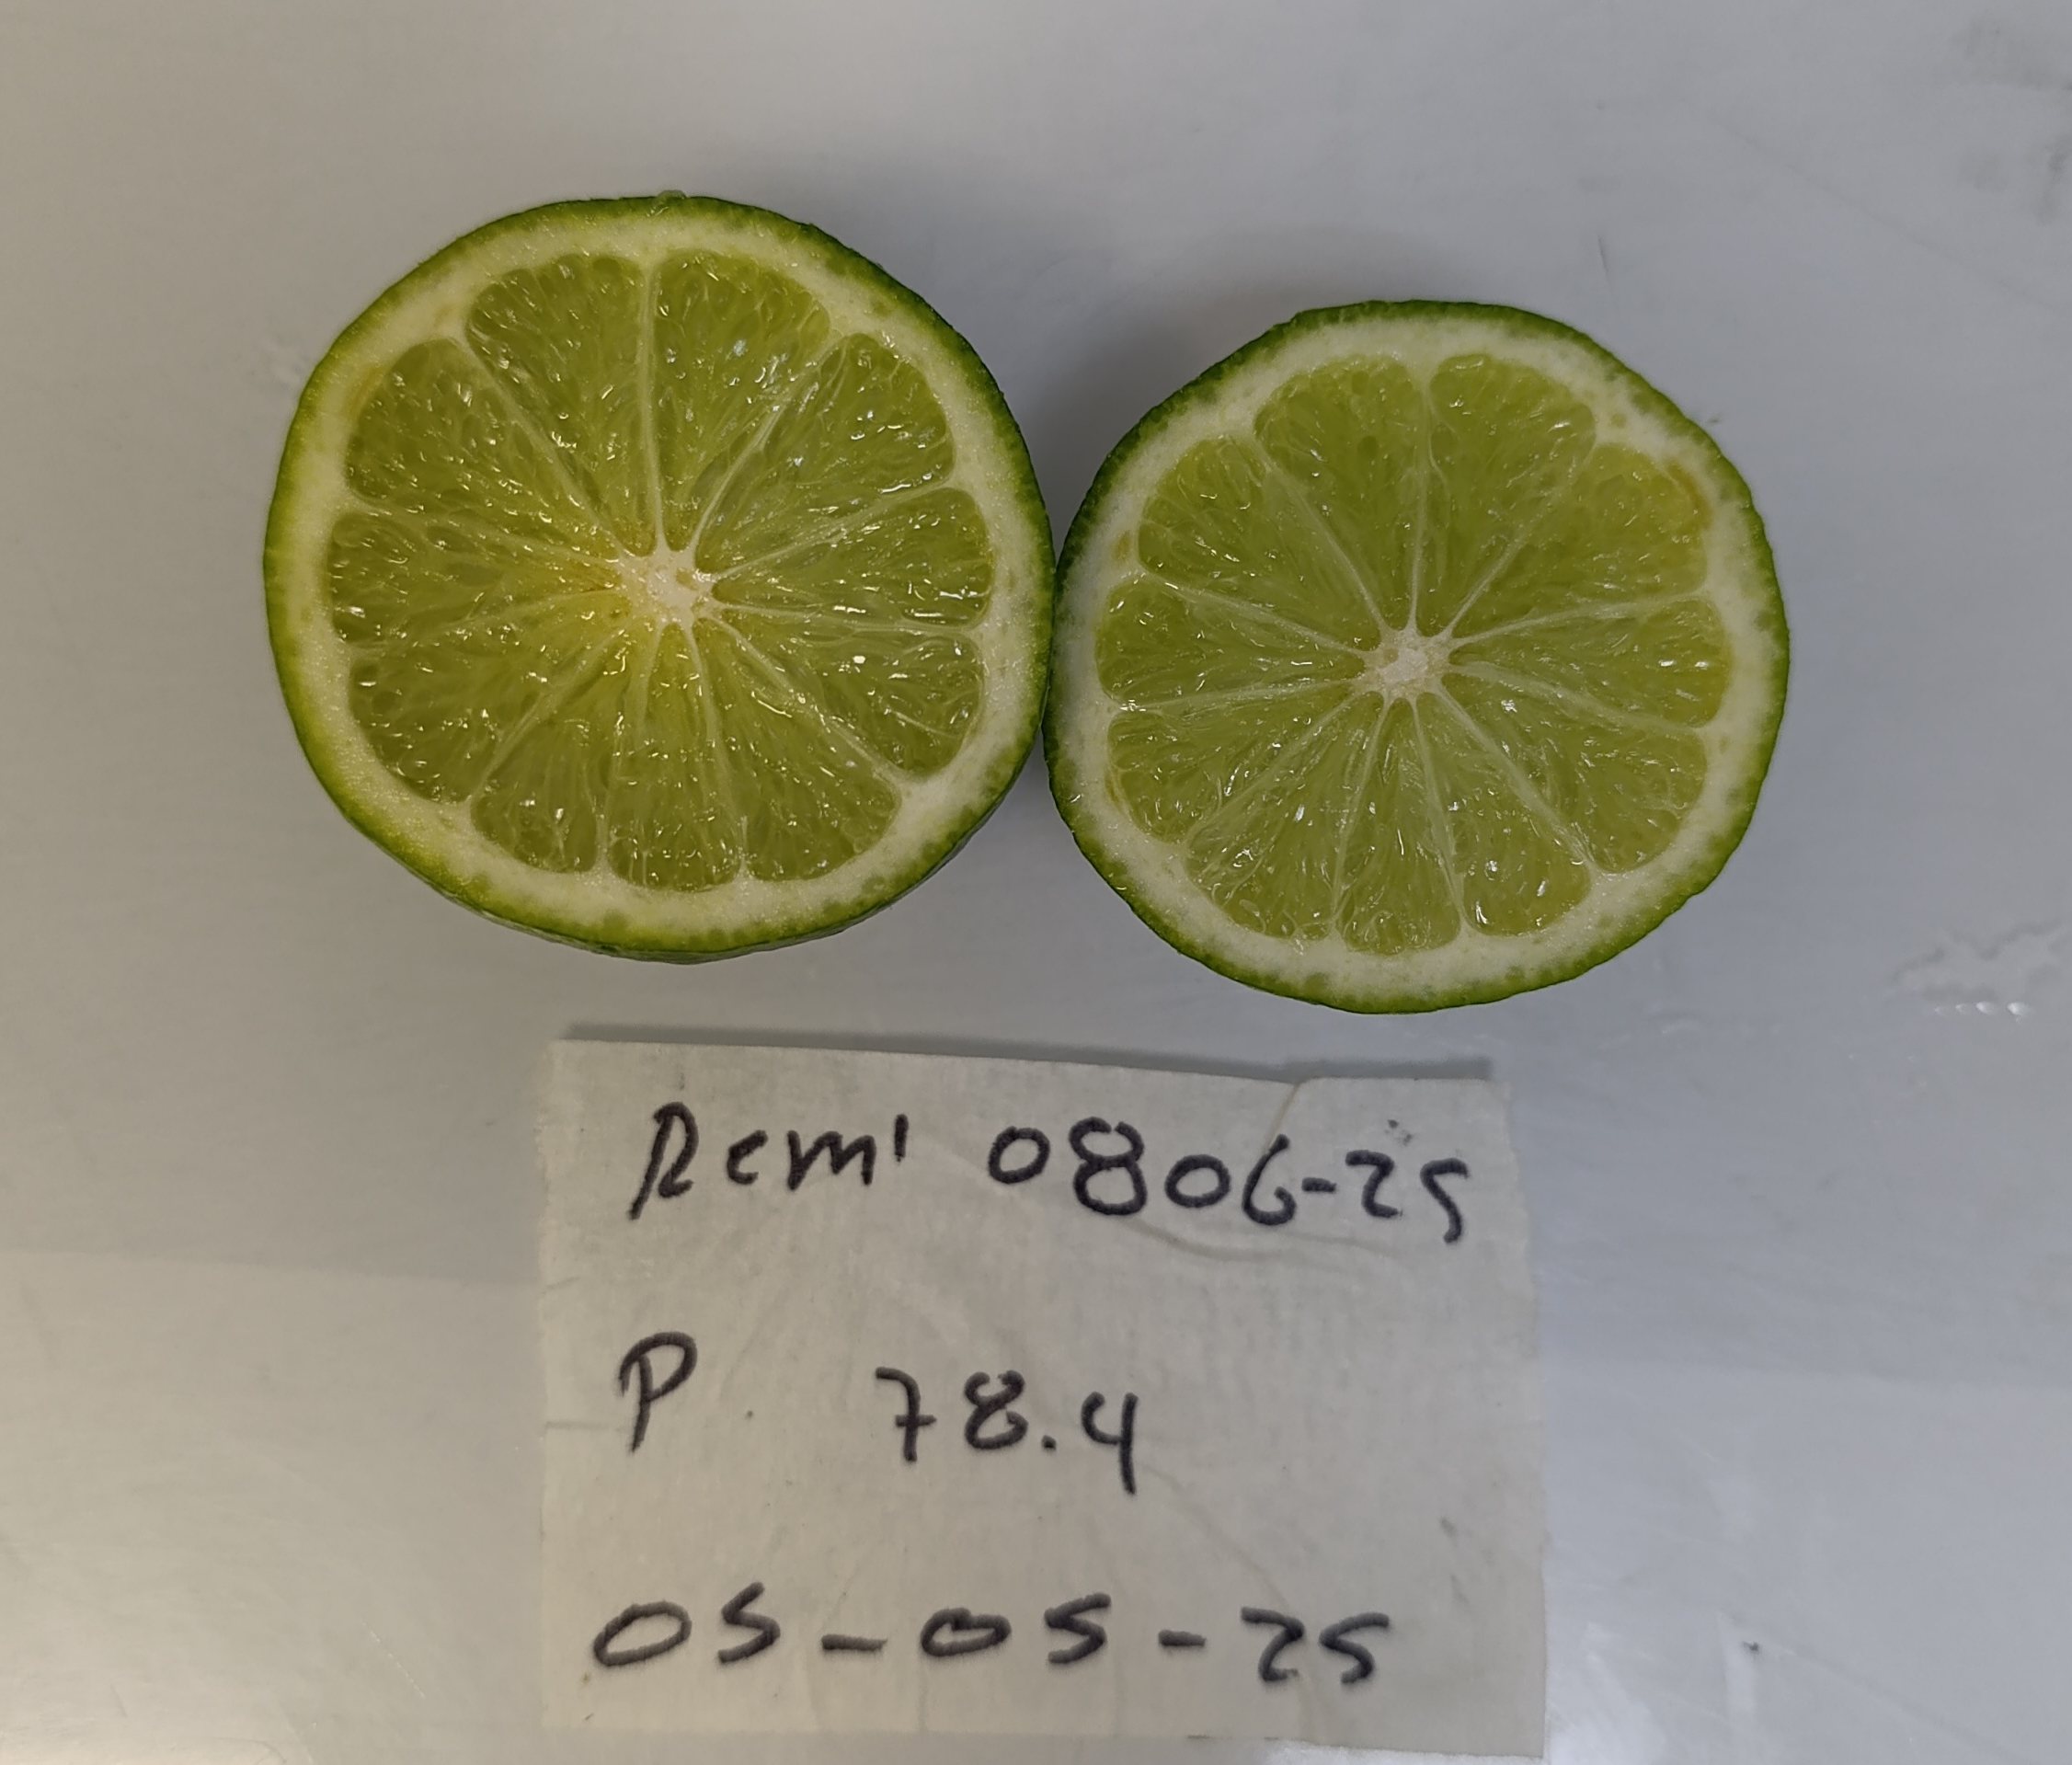 Rem' 0806-25
P 78.4
05-05-25